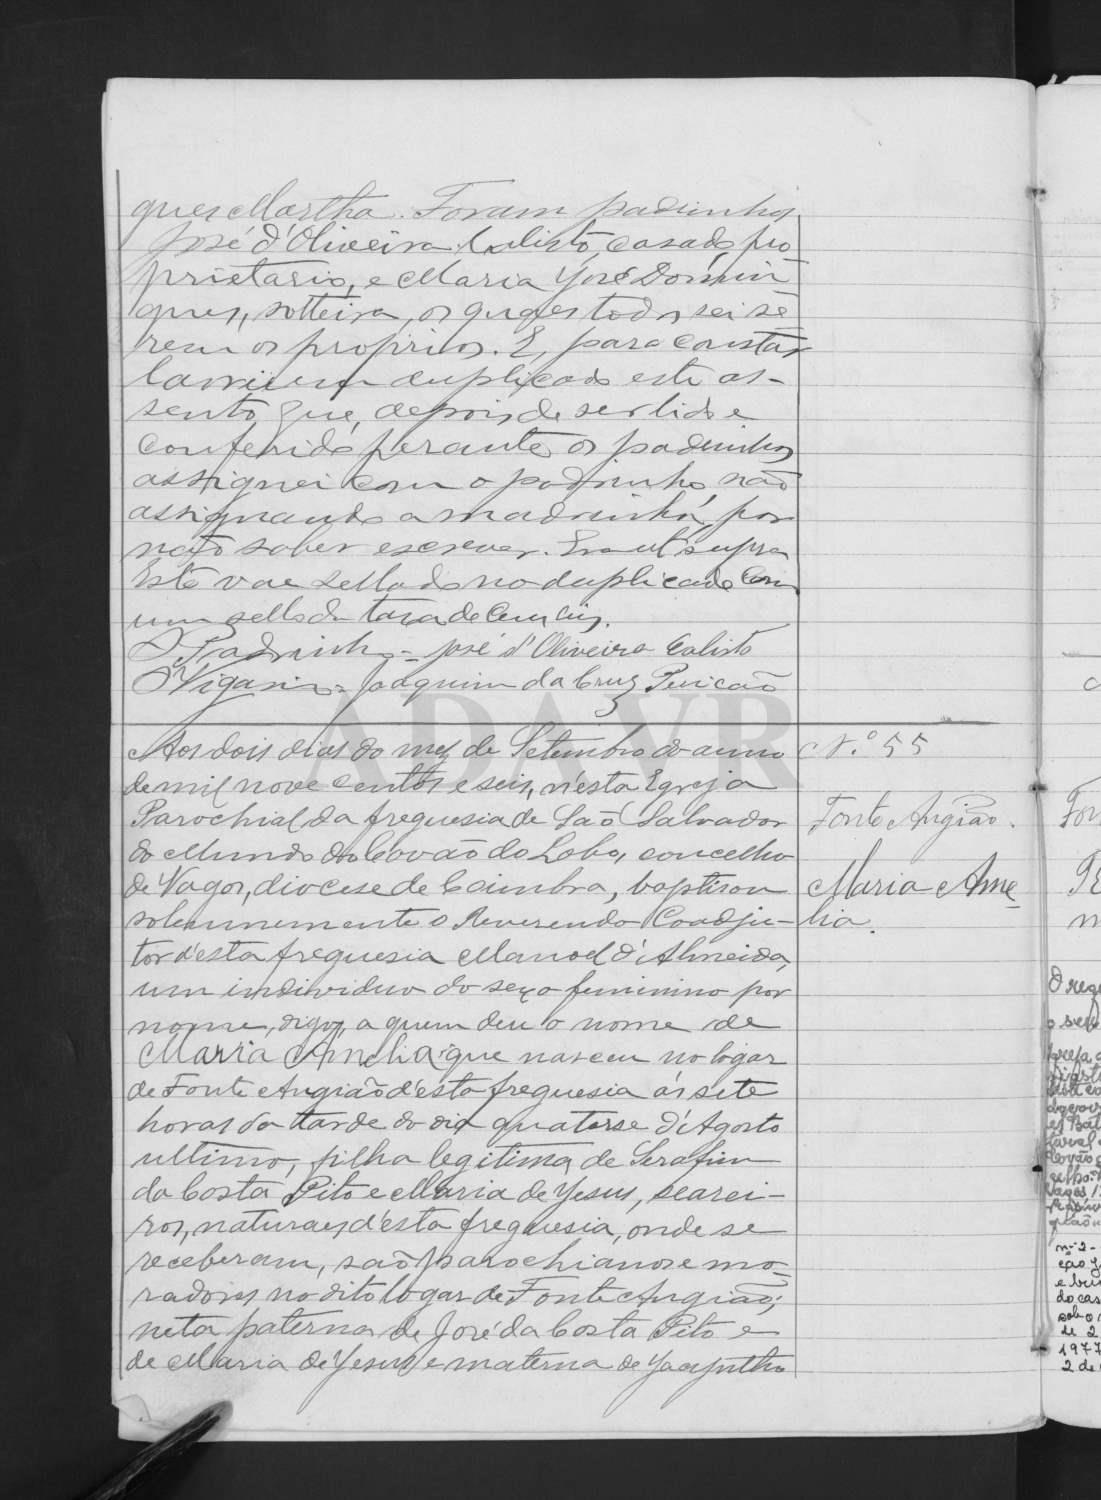 gues Martha. Foram padrinhos
José d'Oliveira Calisto, casado, pro
prietario, e Maria José Domin
gues, solteira, os quaes todos sei se
rem os proprios. E, para constar
lavrei em duplicado este as-
sento que, depois de ser lido e
conferido perante os padrinhos
assignei com o padrinho, não
assignando a madrinha, por
não saber escrever. Era ut supra
Este vae sellado no duplicado com
um sello da taxa de cem reis.
O Padrinho = José d'Oliveira Calisto
O Vigario = Joaquim da Cruz Pericão
ADAVR
Aos dois dias do mez de Setembro do anno
de mil nove centos e seis, n'esta Egreja
Parochial da freguesia de São Salvador
do Mundo do Covão do Lobo, concelho
de Vagos, diocese de Coimbra, baptisou
solemnemente o Reverendo Coadju-
tor d'esta freguesia Manoel d'Almeida,
um individuo do sexo feminino por
nome, digo, a quem deu o nome de
Maria Amelia, que nasceu no logar
de Fonte Angião d'esta freguesia ás sete
horas da tarde do dia quatorse d'Agosto
ultimo, filha legitima de Serafim
da Costa Pito e Maria de Jesus, searei-
ros, naturaes d'esta freguesia, onde se
receberam, são parochianos e mo-
radores no dito logar de Fonte Angião;
neta paterna de José da Costa Pito e
de Maria de Jesus e materna de Jacyntho
N.º 55
Fonte Angião.
Maria Ame
lia.
Fon
n
O reg
o sel
1977
2 de